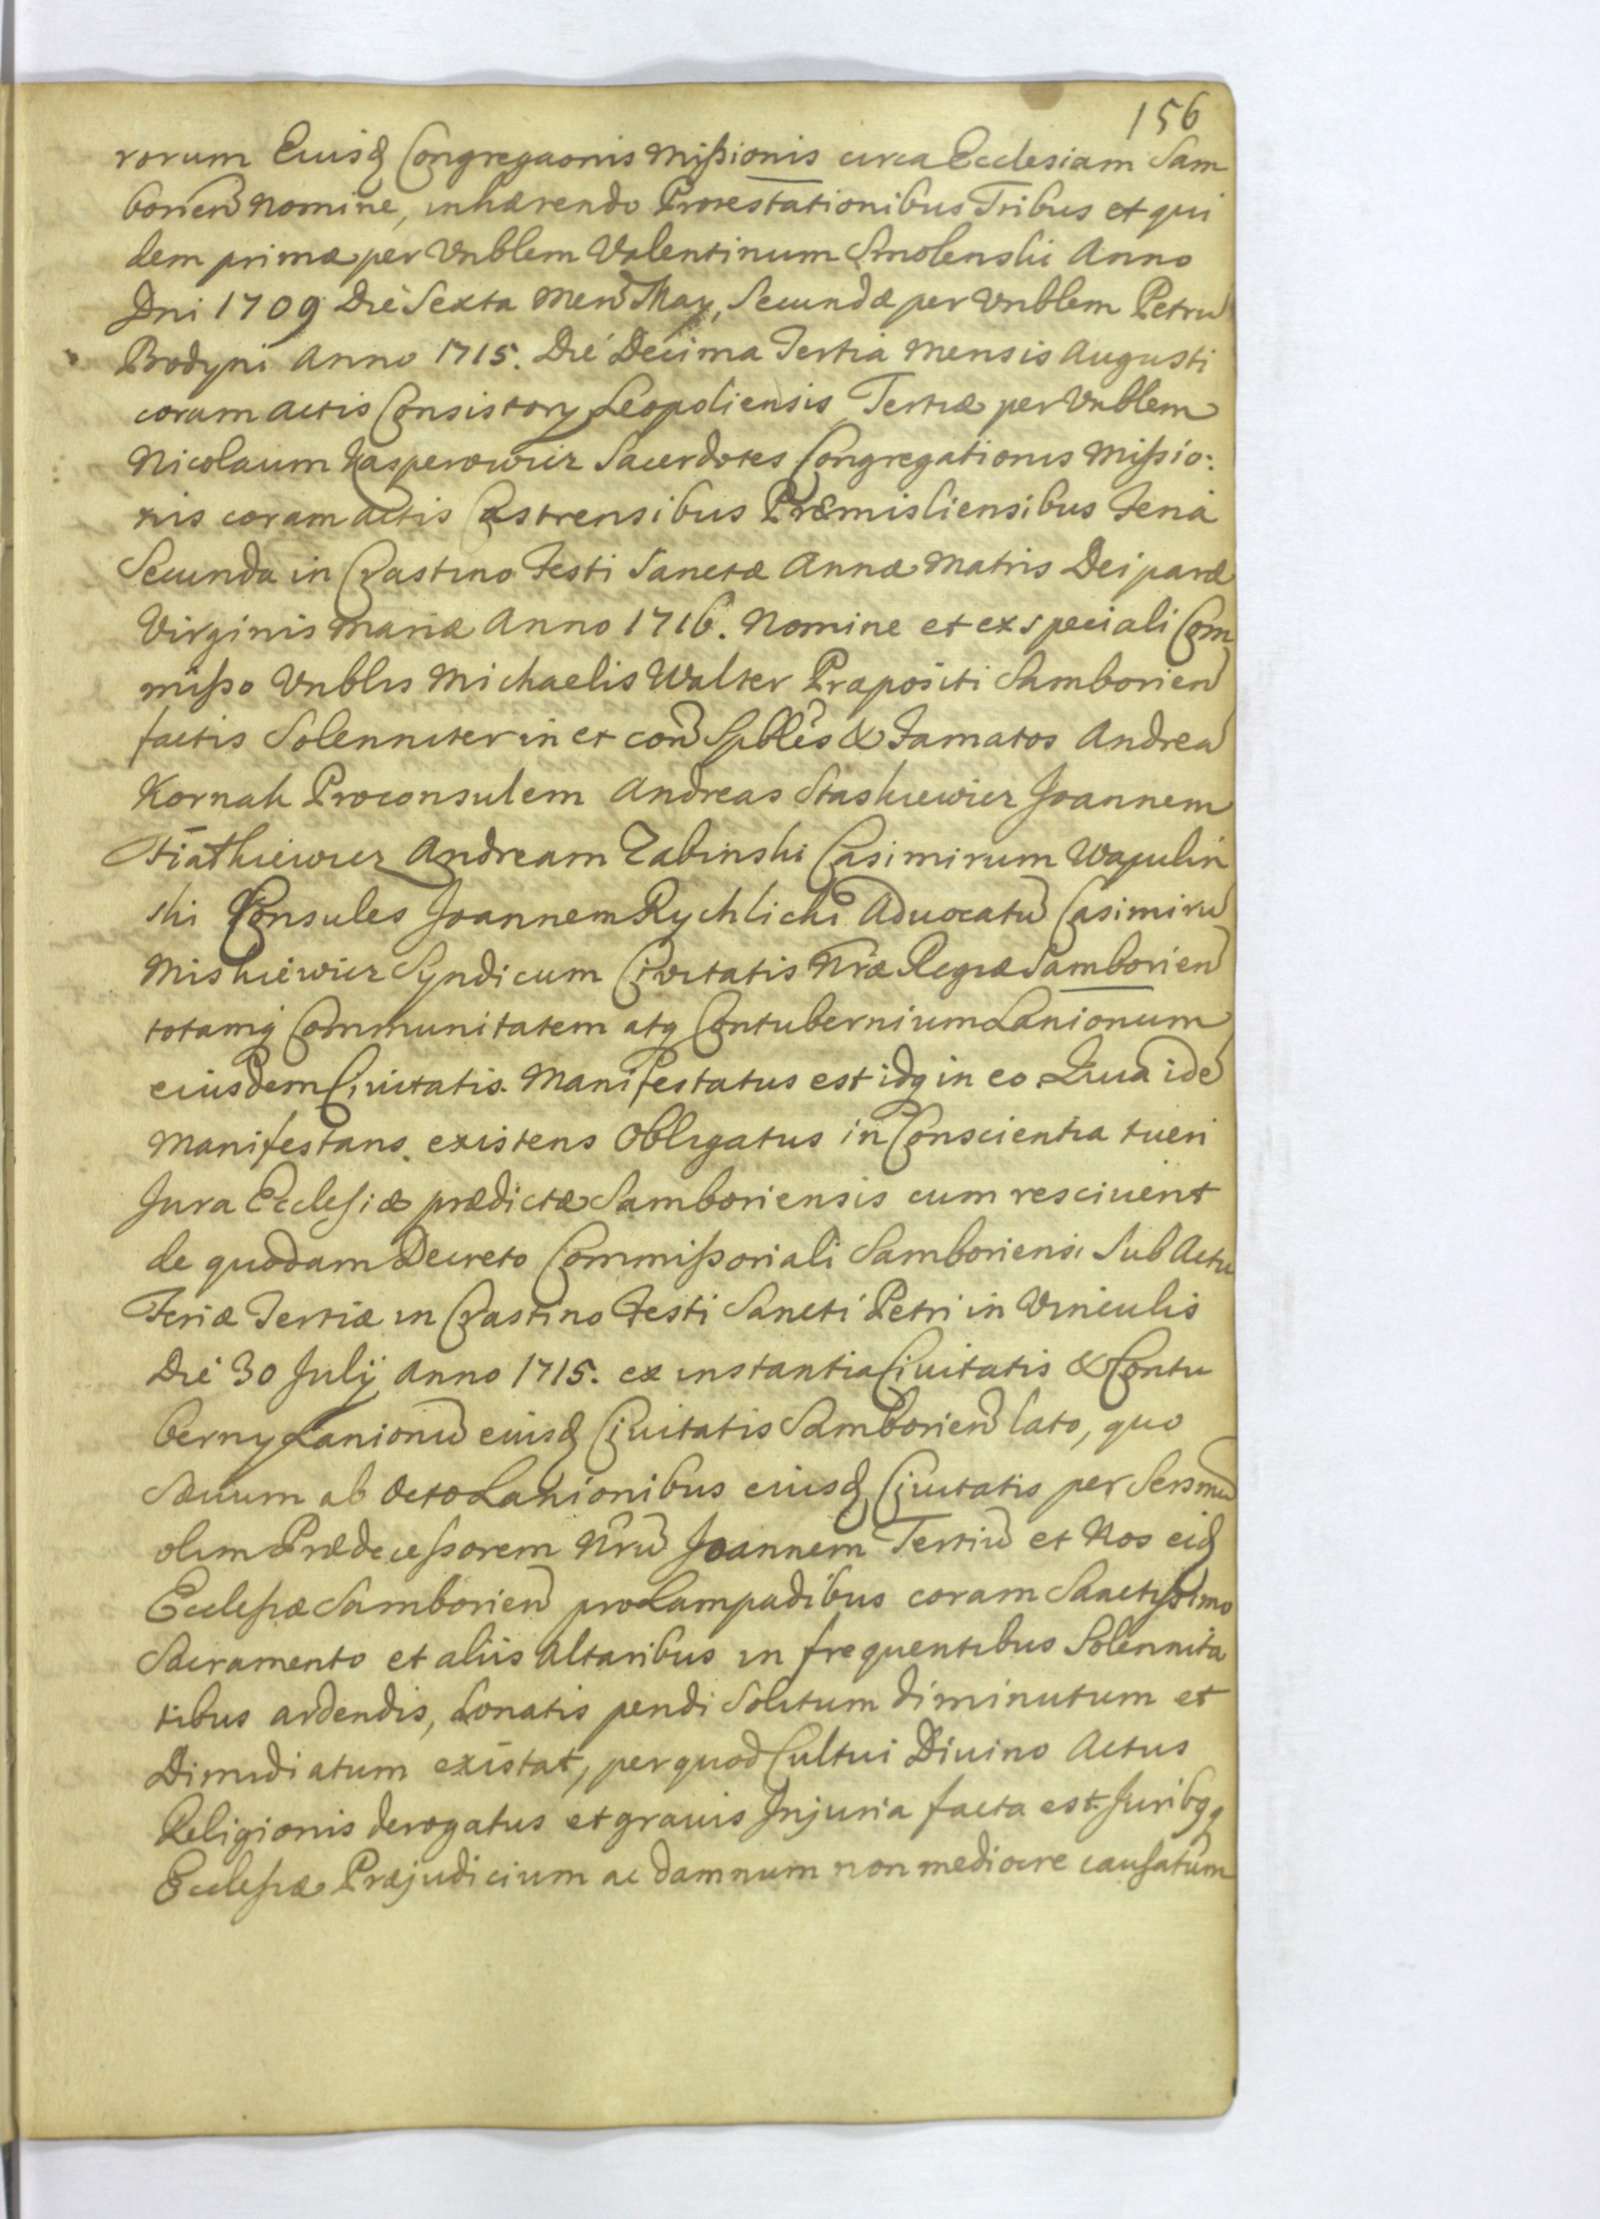 156
rorum Eiusd Congregaonis Missionis circa Ecclesiam Sam
borien Nomine, inhærendo Protestationibus Tribus et qui
dem primæ per Vnblem Valentinum Smolenski Anno
Dni 1709 Die Sexta Men May, Secundæ per Vnblem Petru
Brodyni Anno 1715. Die Decima Tertia Mensis Augusti
coram actis Consistory Leopoliensis Tertiæ per Vnblem
Nicolaum Kasperowicz Sacerdotes Congregationis Missio:
nis coram actis Castrensibus Præmisliensibus Feria
Secunda in Crastino Festi Sanctæ Annæ Matris Deiparæ
Virginis Mariæ Anno 1716. Nomine et ex speciali Com
misso Vnblis Michaelis Walter Præpositi Samborien
factis Solenniter in et con Spbles & Famatos Andrea
Kornak Proconsulem Andreas Staskiewicz Joannem
Fiathiewicz Andream Zabinski Casimirum Wapulin
ski Consules Joannem Rychlicki Aduocatu Casimiru
Miskiewicz Syndicum Ciuitatis Nræ Regiæ Samborien
totamq Communitatem atq Contubernium Lanionum
eiusdem Ciuitatis. Manifestatus est idq in eo Quia ide
Manifestans existens Obligatus in Conscientia tueri
Jura Ecclesiæ prædictæ Samboriensis cum resciuerit
de quodam Decreto Commissoriali Samboriensi Sub Actu
Feriæ Tertiæ in Crastino Festi Sancti Petri in Vinculis
Die 30 Julij Anno 1715. ex instantia Ciuitatis & Contu
berny Lanionu eiusd Ciuitatis Samborien lato, quo
Sæuum ab Octo Lanionibus eiusd Ciuitatis per Sersmu
olim Prædecessorem Nru Joannem Tertiu et Nos eid
Ecclesiæ Samborien pro Lampadibus coram Sanctissimo
Sacramento et aliis Altaribus in frequentibus Solennita
tibus ardendis, Donatis pendi Solitum diminutum et
Dimidiatum existat, per quod Cultui Diuino Actus
Religionis derogatus et grauis Injuria facta est. Juribqq
Ecclesiæ Præjudicium ac damnum non mediocre causatum